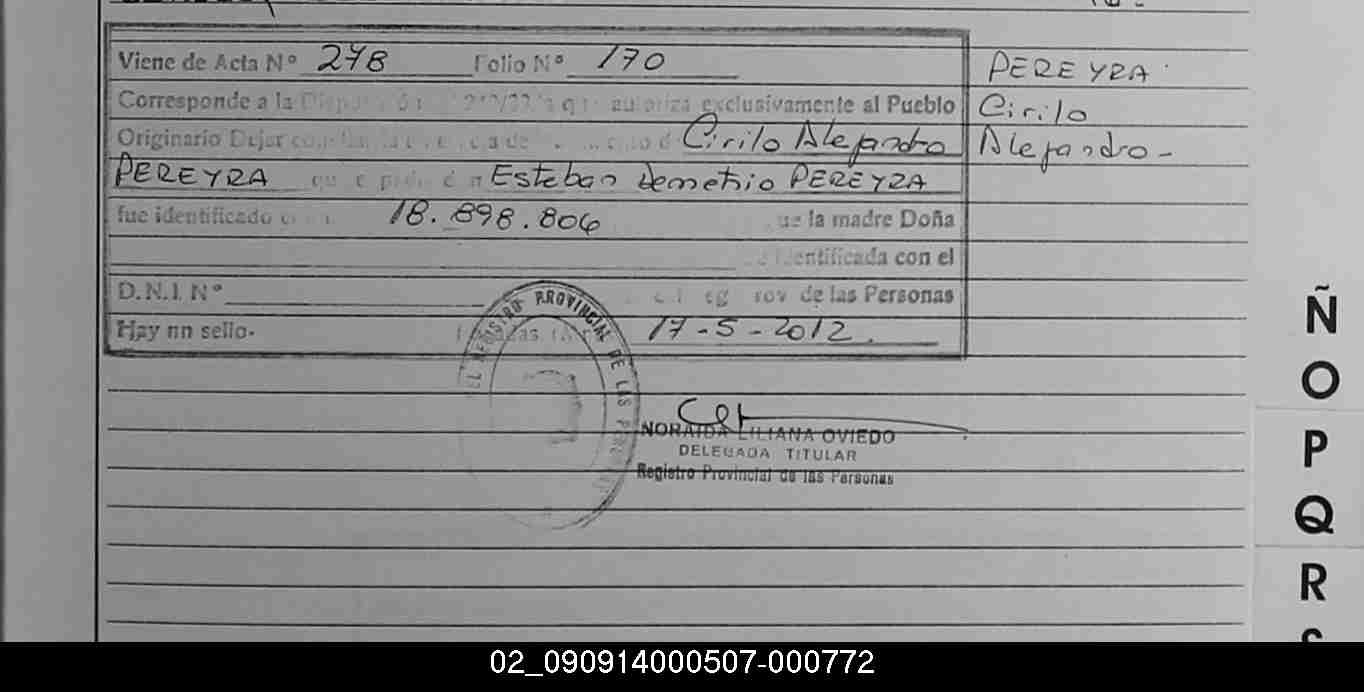 Viene de Acta N° 278 Folio N° 170
PEREYRA
Corresponde a la autoriza exclusivamente al Pueblo
Cirilo
Originario Dejar Cirilo Alejandro
Alejandro-
PEREYRA Esteban Demetrio PEREYRA
fue identificado 18.898.806 que la madre Doña
identificada con el
D.N.I. N° de las Personas
Hay un sello. 17-5-2012.
EL REGISTRO PROVINCIAL DE LAS PERSONAS
NORAIDA LILIANA OVIEDO
DELEGADA TITULAR
Registro Provincial de las Personas
Ñ
O
P
Q
R
S
02_090914000507-000772